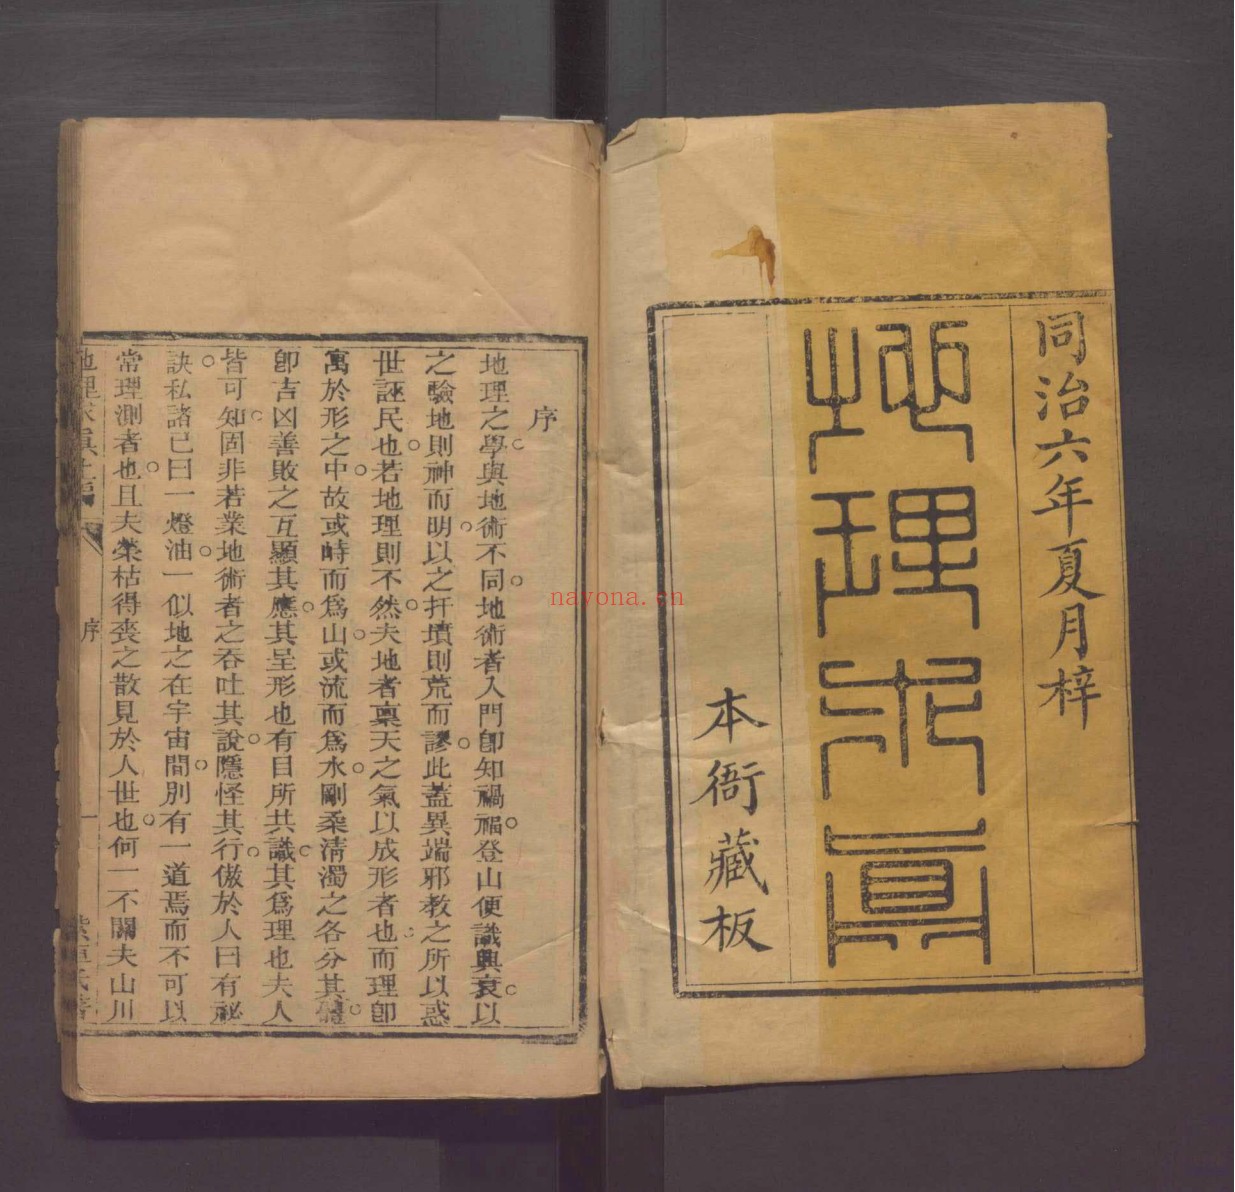 同治六年夏月梓
地理求真
本衙藏板
序
地理之學與地術不同地術者入門卽知禍福登山便識興衰以
之驗地則神而明以之扞墳則荒而謬此蓋異端邪教之所以惑
世誣民也若地理則不然夫地者稟天之氣以成形者也而理卽
寓於形之中故或峙而爲山或流而爲水剛柔清濁之各分其體
卽吉凶善敗之互顯其應其呈形也有目所共識其爲理也夫人
皆可知固非若業地術者之吞吐其說隱怪其行傲於人曰有祕
訣私諸己曰一燈油一似地之在宇宙間別有一道焉而不可以
常理測者也且夫榮枯得喪之散見於人世也何一不關夫山川
地理求真 序 一
nayona.cn